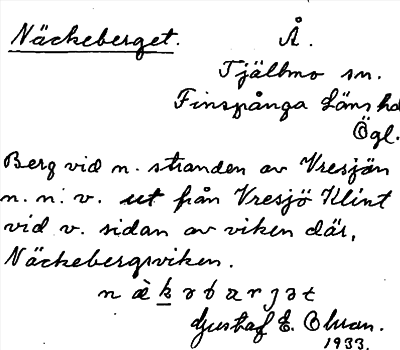 Näckeberget. Å.
Tjällmo sn.
Finspånga Läns hd
Ögl.
Berg vid n. stranden av Vresjön
n. n. v. ut från Vresjö Klint
vid v. sidan av viken där,
Näckebergsviken.
n ä̀ k ə b a r j ə t
Gustaf E. Olson.
1933.